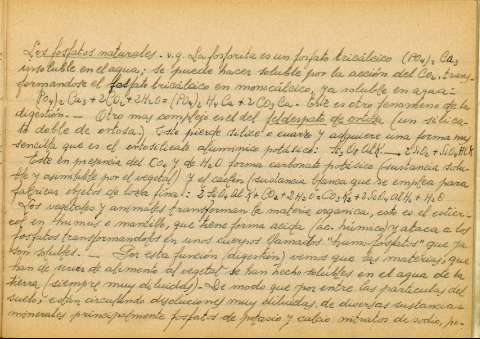 Los fosfatos naturales.- v.g. La fosforita es un fosfato tricálcico (PO4)2 Ca3
insoluble en el agua; se puede hacer soluble por la acción del CO2, trans-
formandose el fosfato tricálcico en monocálcico, ya soluble en agua:
(PO4)2 Ca3 + 2CO2 + 2H2O = (PO4)2 H4 Ca + 2CO3Ca. Este es otro fenomeno de la
digestión. — Otro mas complejo es el del feldespato de ortosa (un silica-
to doble de ortosa). Este pierde sílice o cuarzo y adquiere una forma mas
sencilla que es el ortosilicato alumínico potásico: Si3O8AlK → 2SiO2 + SiO4AlK
Este en presencia del CO2 y de H2O forma carbonato potásico (sustancia solu-
ble y asimilable por el vegetal) y el caolin (sustancia blanca que se emplea para
fabricar objetos de loza fina): 2 SiO4AlK + CO2 + 2H2O = CO3K2 +
Los vegetales y animales transforman la materia organica, esto es el estier-
col en humus o mantillo, que tiene forma acida (ac. húmico) y ataca a los
fosfatos transformandolos en unos cuerpos llamados "humifosfatos" que ya
son solubles. — Por esta función (digestión) vemos que las materias que
han de servir de alimento al vegetal se han hecho solubles en el agua de la
tierra (siempre muy diluidas).- De modo que por entre las particulas del
suelo, estan circulando disoluciones muy diluidas de diversas sustancias
minerales principalmente fosfatos de potasio y calcio, nitratos de sodio, po-